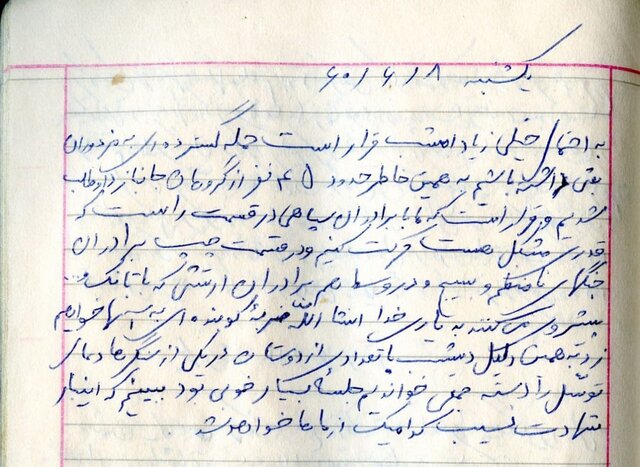 یکشنبه ۶۰/۶/۸
به احتمال خیلی زیاد امشب قرار است حمله گسترده‌ای به مزدوران
بعثی داشته باشیم به همین خاطر حدود ۴۵ نفر از گروهان جانباز داوطلب
شدیم و قرار است که ما با برادران سپاهی در قسمت راست که
قدری مشکل هست حرکت کنیم و در قسمت چپ برادران
جنگهای نامنظم و بسیج و در وسط هم برادران ارتشی که با تانک و...
پیشروی می‌کنند به یاری خدا انشاءالله ضربهٔ کوبنده‌ای به آنها خواهیم
زد به همین دلیل دیشب با تعدادی از دوستان در یکی از سنگرها دعای
توسل را دسته جمعی خواندیم جلسهٔ بسیار خوبی بود ببینیم که اینبار
شهادت نصیب کدامیک از ماها خواهد شد